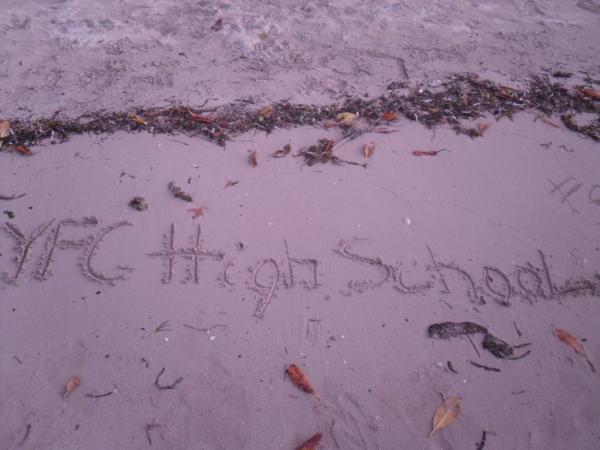 YFC High School